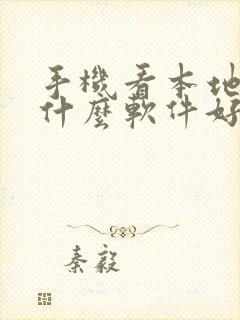 手機看本地
什麼軟件好
秦毅